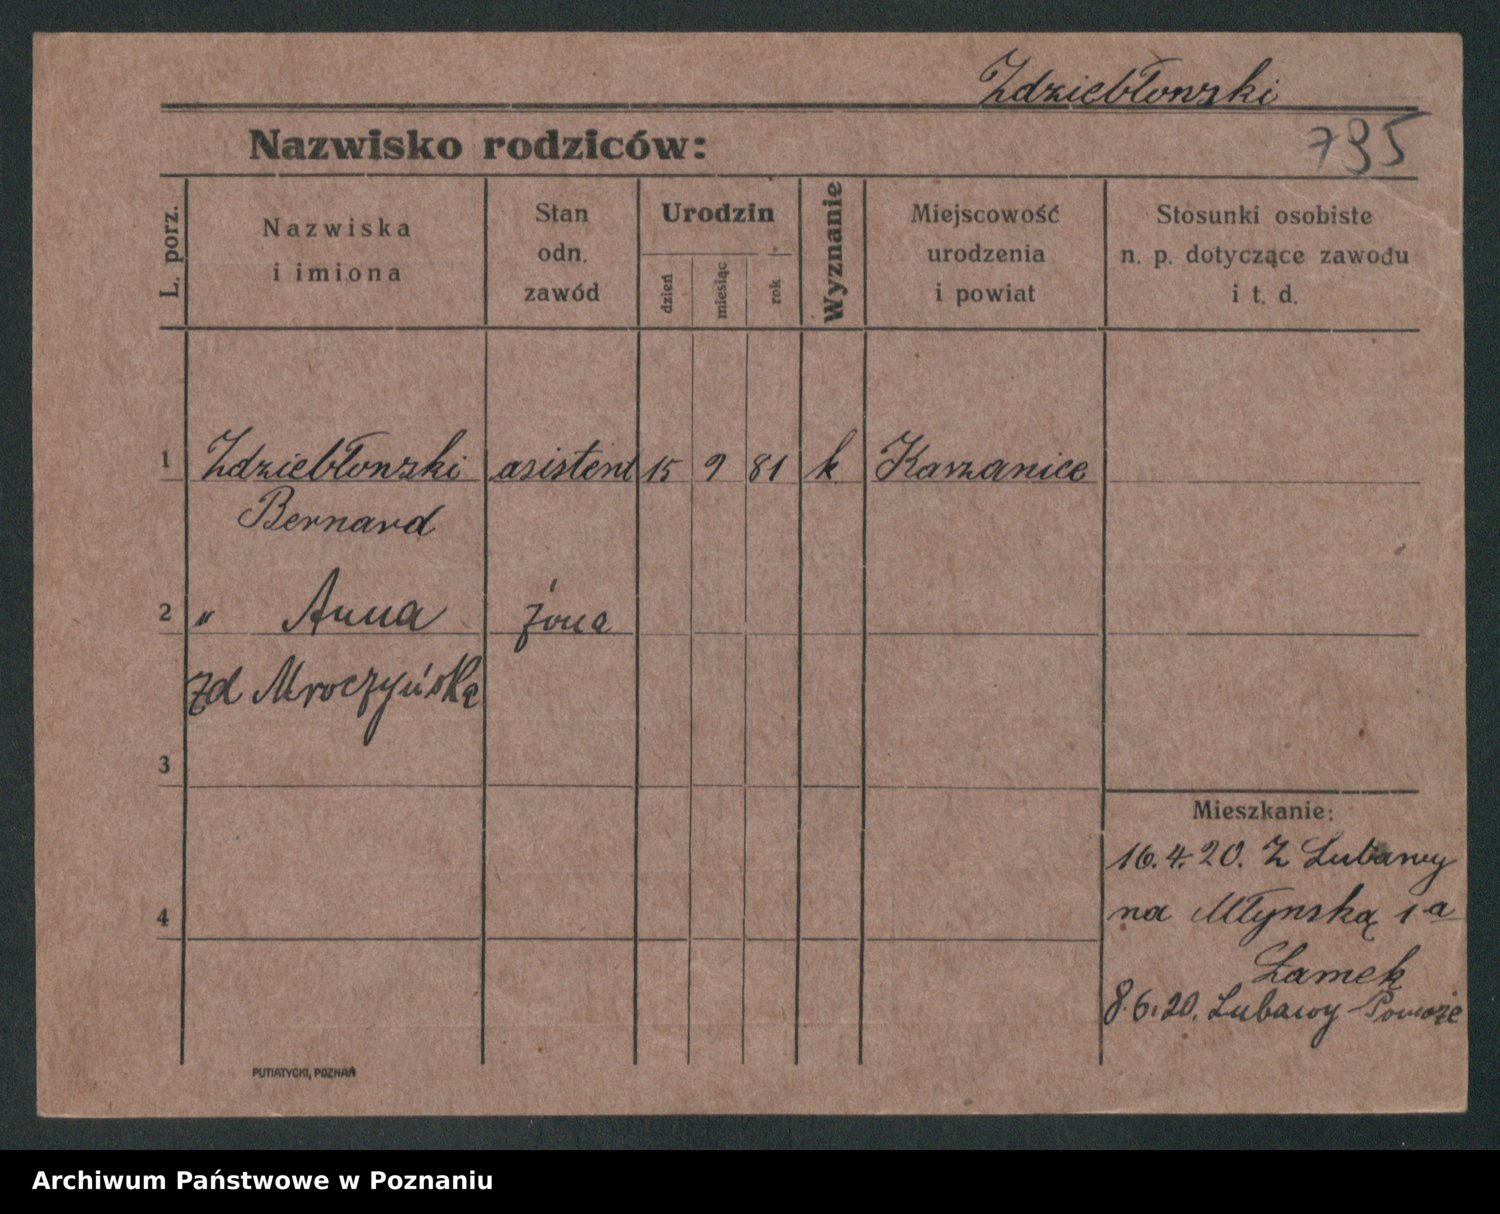 Zdziebłowski
Nazwisko rodziców:
795
L. porz.
Nazwiska
i imiona
Stan
odn.
zawód
Urodzin
dzień
miesiąc
rok
Wyznanie
Miejscowość
urodzenia
i powiat
Stosunki osobiste
n. p. dotyczące zawodu
i t. d.
1 Zdziebłowski asistent 15 9 81 k Karzanice
Bernard
2 " Anna żona
zd Mroczyńska
3
Mieszkanie:
16.4.20. Z Lubawy
4 na Młynską 1 a
Zamek
8.6.20. Lubawy - Pomorze
PUTIATYCKI, POZNAŃ
Archiwum Państwowe w Poznaniu